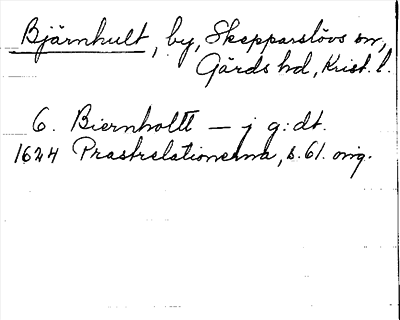 Bjärnhult, by, Skepparslövs sn,
Gärds hd, Krist. l.
6. Biernholtt — j g:dt.
1624 Prastrelationerna, s. 61. orig.